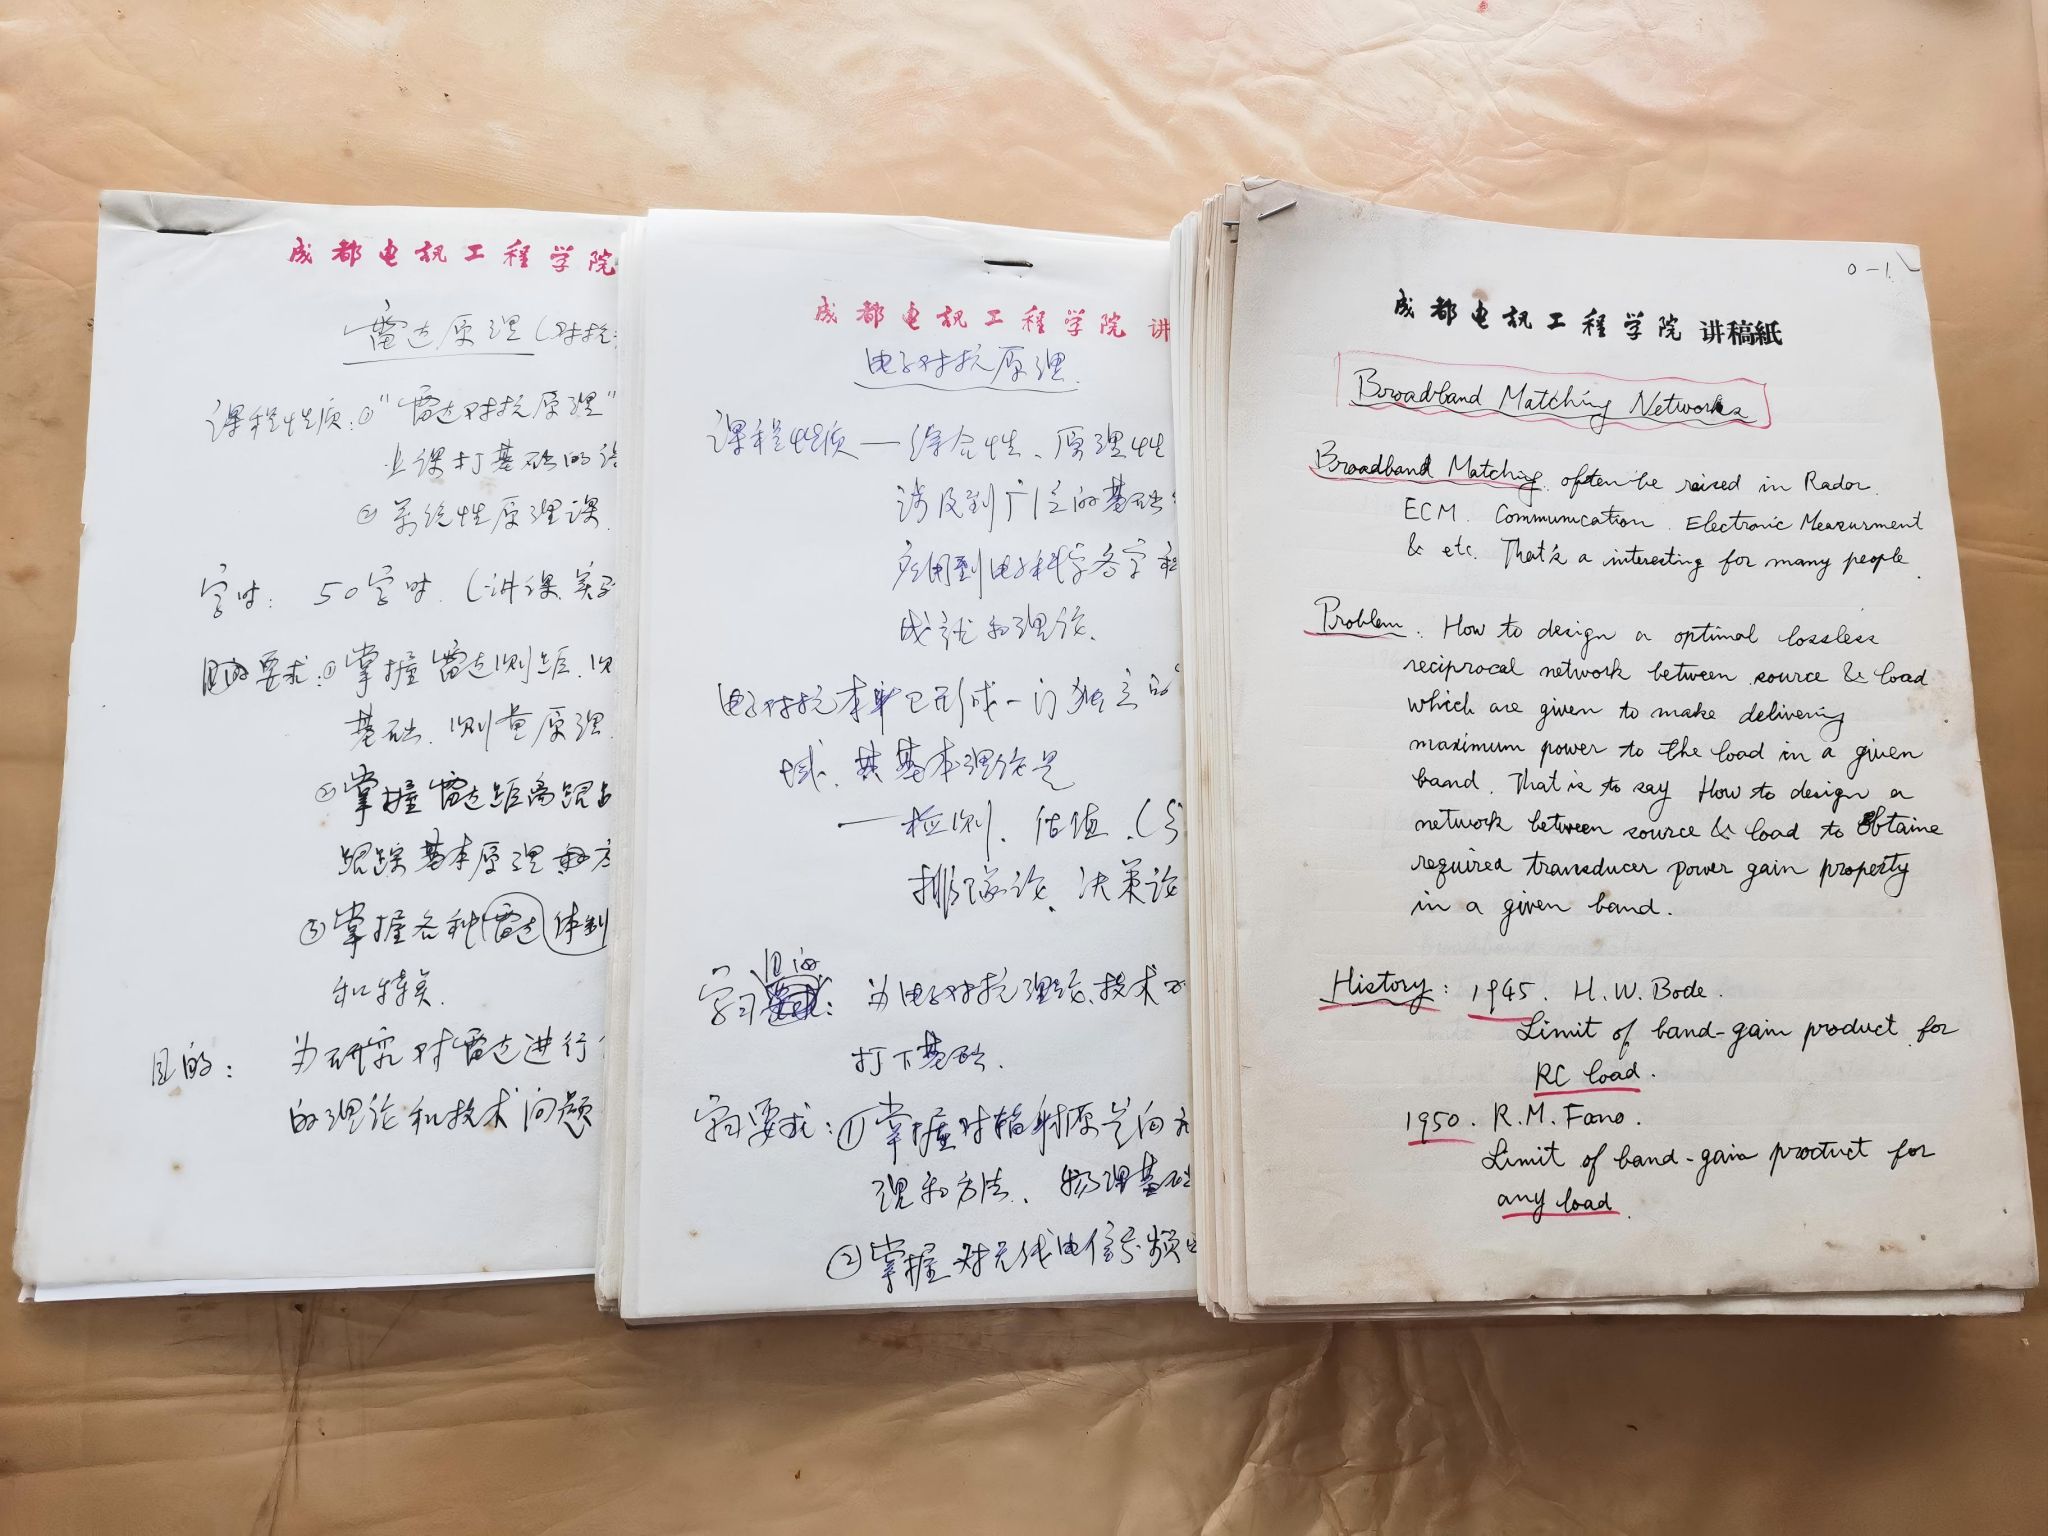 成都电讯工程学院
雷达原理(对抗
课程性质:①"雷达对抗原理"
上课打基础的
② 系统性原理课
学时: 50学时.(讲课.实
目的要求:①掌握雷达测距.
基础.测量原理.
②掌握雷达距离跟
跟踪基本原理和方
③掌握各种雷达体制
和特点.
目的: 为研究对雷达进行
的理论和技术问题
成都电讯工程学院 讲
电子对抗原理
课程性质—综合性、原理性
涉及到广泛的基础
应用到电子科学各学科
成就和理论.
电子对抗本身已形成一门独立的
域.其基本理论是
—检测.估值.(
排队论.决策论
学习目的: 为电子对抗理论.技术
打下基础.
学习要求:①掌握对辐射源定向
理和方法. 物理基础
②掌握对无线电信号频
0-1.
成都电讯工程学院 讲稿紙
Broadband Matching Networks
Broadband Matching. often be reised in Radar.
ECM. Communication. Electronic Measurment
& etc. That's a interesting for many people.
Problem. How to design a optimal lossless
reciprocal network between source & load
which are given to make delivering
maximum power to the load in a given
band. That is to say How to design a
network between source & load to obtaine
required transducer power gain property
in a given band.
History: 1945. H.W. Bode.
Limit of band-gain product for
RC load.
1950. R.M. Fano.
Limit of band-gain product for
any load.